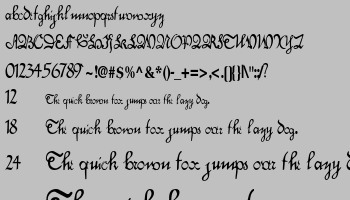 abcdefghijklmnopqrstuvwxyz
ABCDEFGHIJKLMNOPQRSTUVWXYZ
0123456789~!@#$%^&*()-_+=>,<.[]{}|\'":;/?
12 The quick brown fox jumps over the lazy dog.
18 The quick brown fox jumps over the lazy dog.
24 The quick brown fox jumps over the lazy